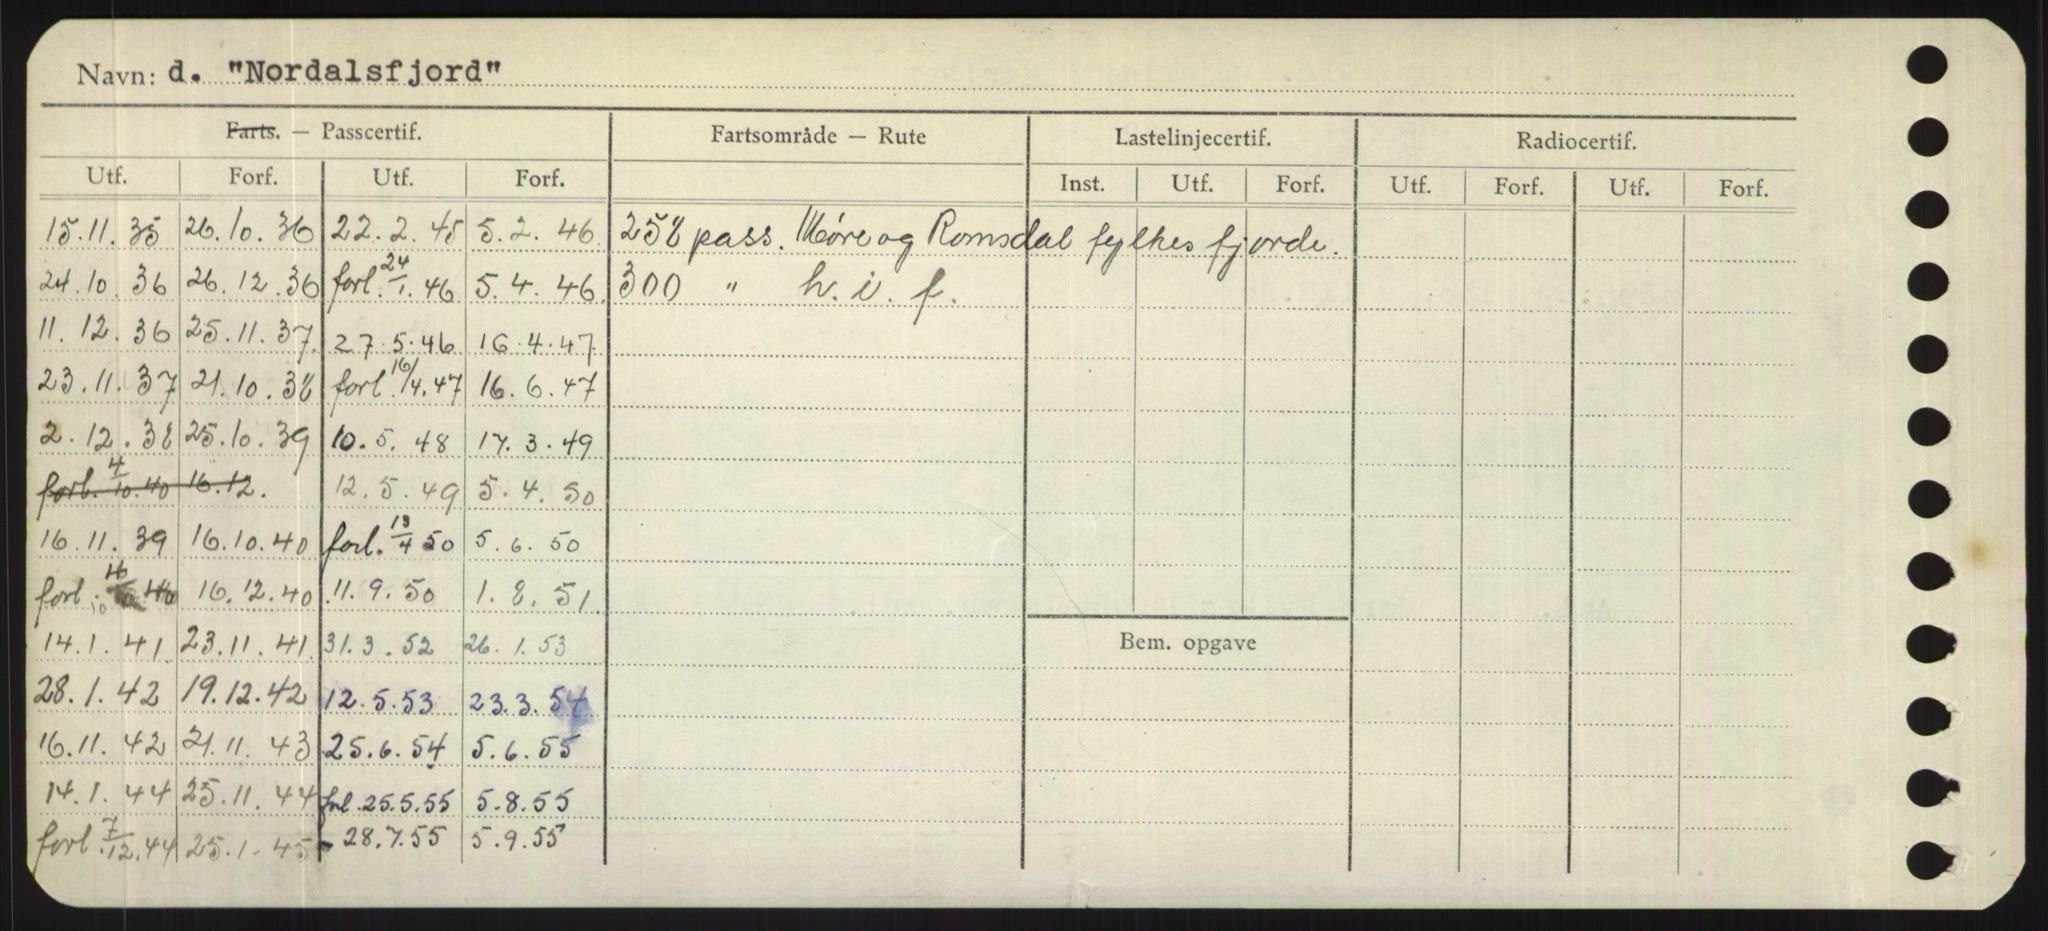 Navn: d. "Nordalsfjord"
Farts. — Passcertif. Fartsområde — Rute Lastelinjecertif. Radiocertif.
Utf. Forf. Utf. Forf. Inst. Utf. Forf. Utf. Forf. Utf. Forf.
15.11.35 26.10.36 22.2.45 5.2.46 258 pass. Møre og Romsdal fylkes fjorde.
24.10.36 26.12.36 forl. 24/1.46 5.4.46 300 " h. i. f.
11.12.36 25.11.37 27.5.46 16.4.47
23.11.37 21.10.38 forl. 16/4.47 16.6.47
2.12.38 25.10.39 10.5.48 17.3.49
forl. 4/10.40 16.12. 12.5.49 5.4.50
16.11.39 16.10.40 forl. 13/4 50 5.6.50
forl. 16/10 40 16.12.40 11.9.50 1.8.51
14.1.41 23.11.41 31.3.52 26.1.53
Bem. opgave
28.1.42 19.12.42 12.5.53 23.3.54
16.11.42 21.11.43 25.6.54 5.6.55
14.1.44 25.11.44 forl. 25.5.55 5.8.55
forl. 7/12.44 25.1.45 - 28.7.55 5.9.55